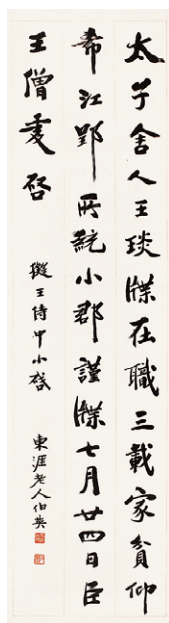 太子舍人王琰牒在職三載家貧仰
希江郢所統小郡謹牒七月廿四日臣
王僧虔啓
擬王侍中小啓
東涯老人伯英